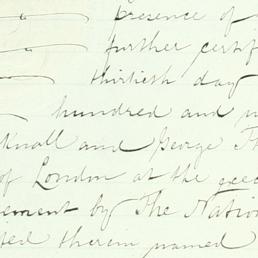 presence of
further certif
thirtieth day
hundred and n
Knall and George Th
of London at the exec
ement by The Nation
ted therein named